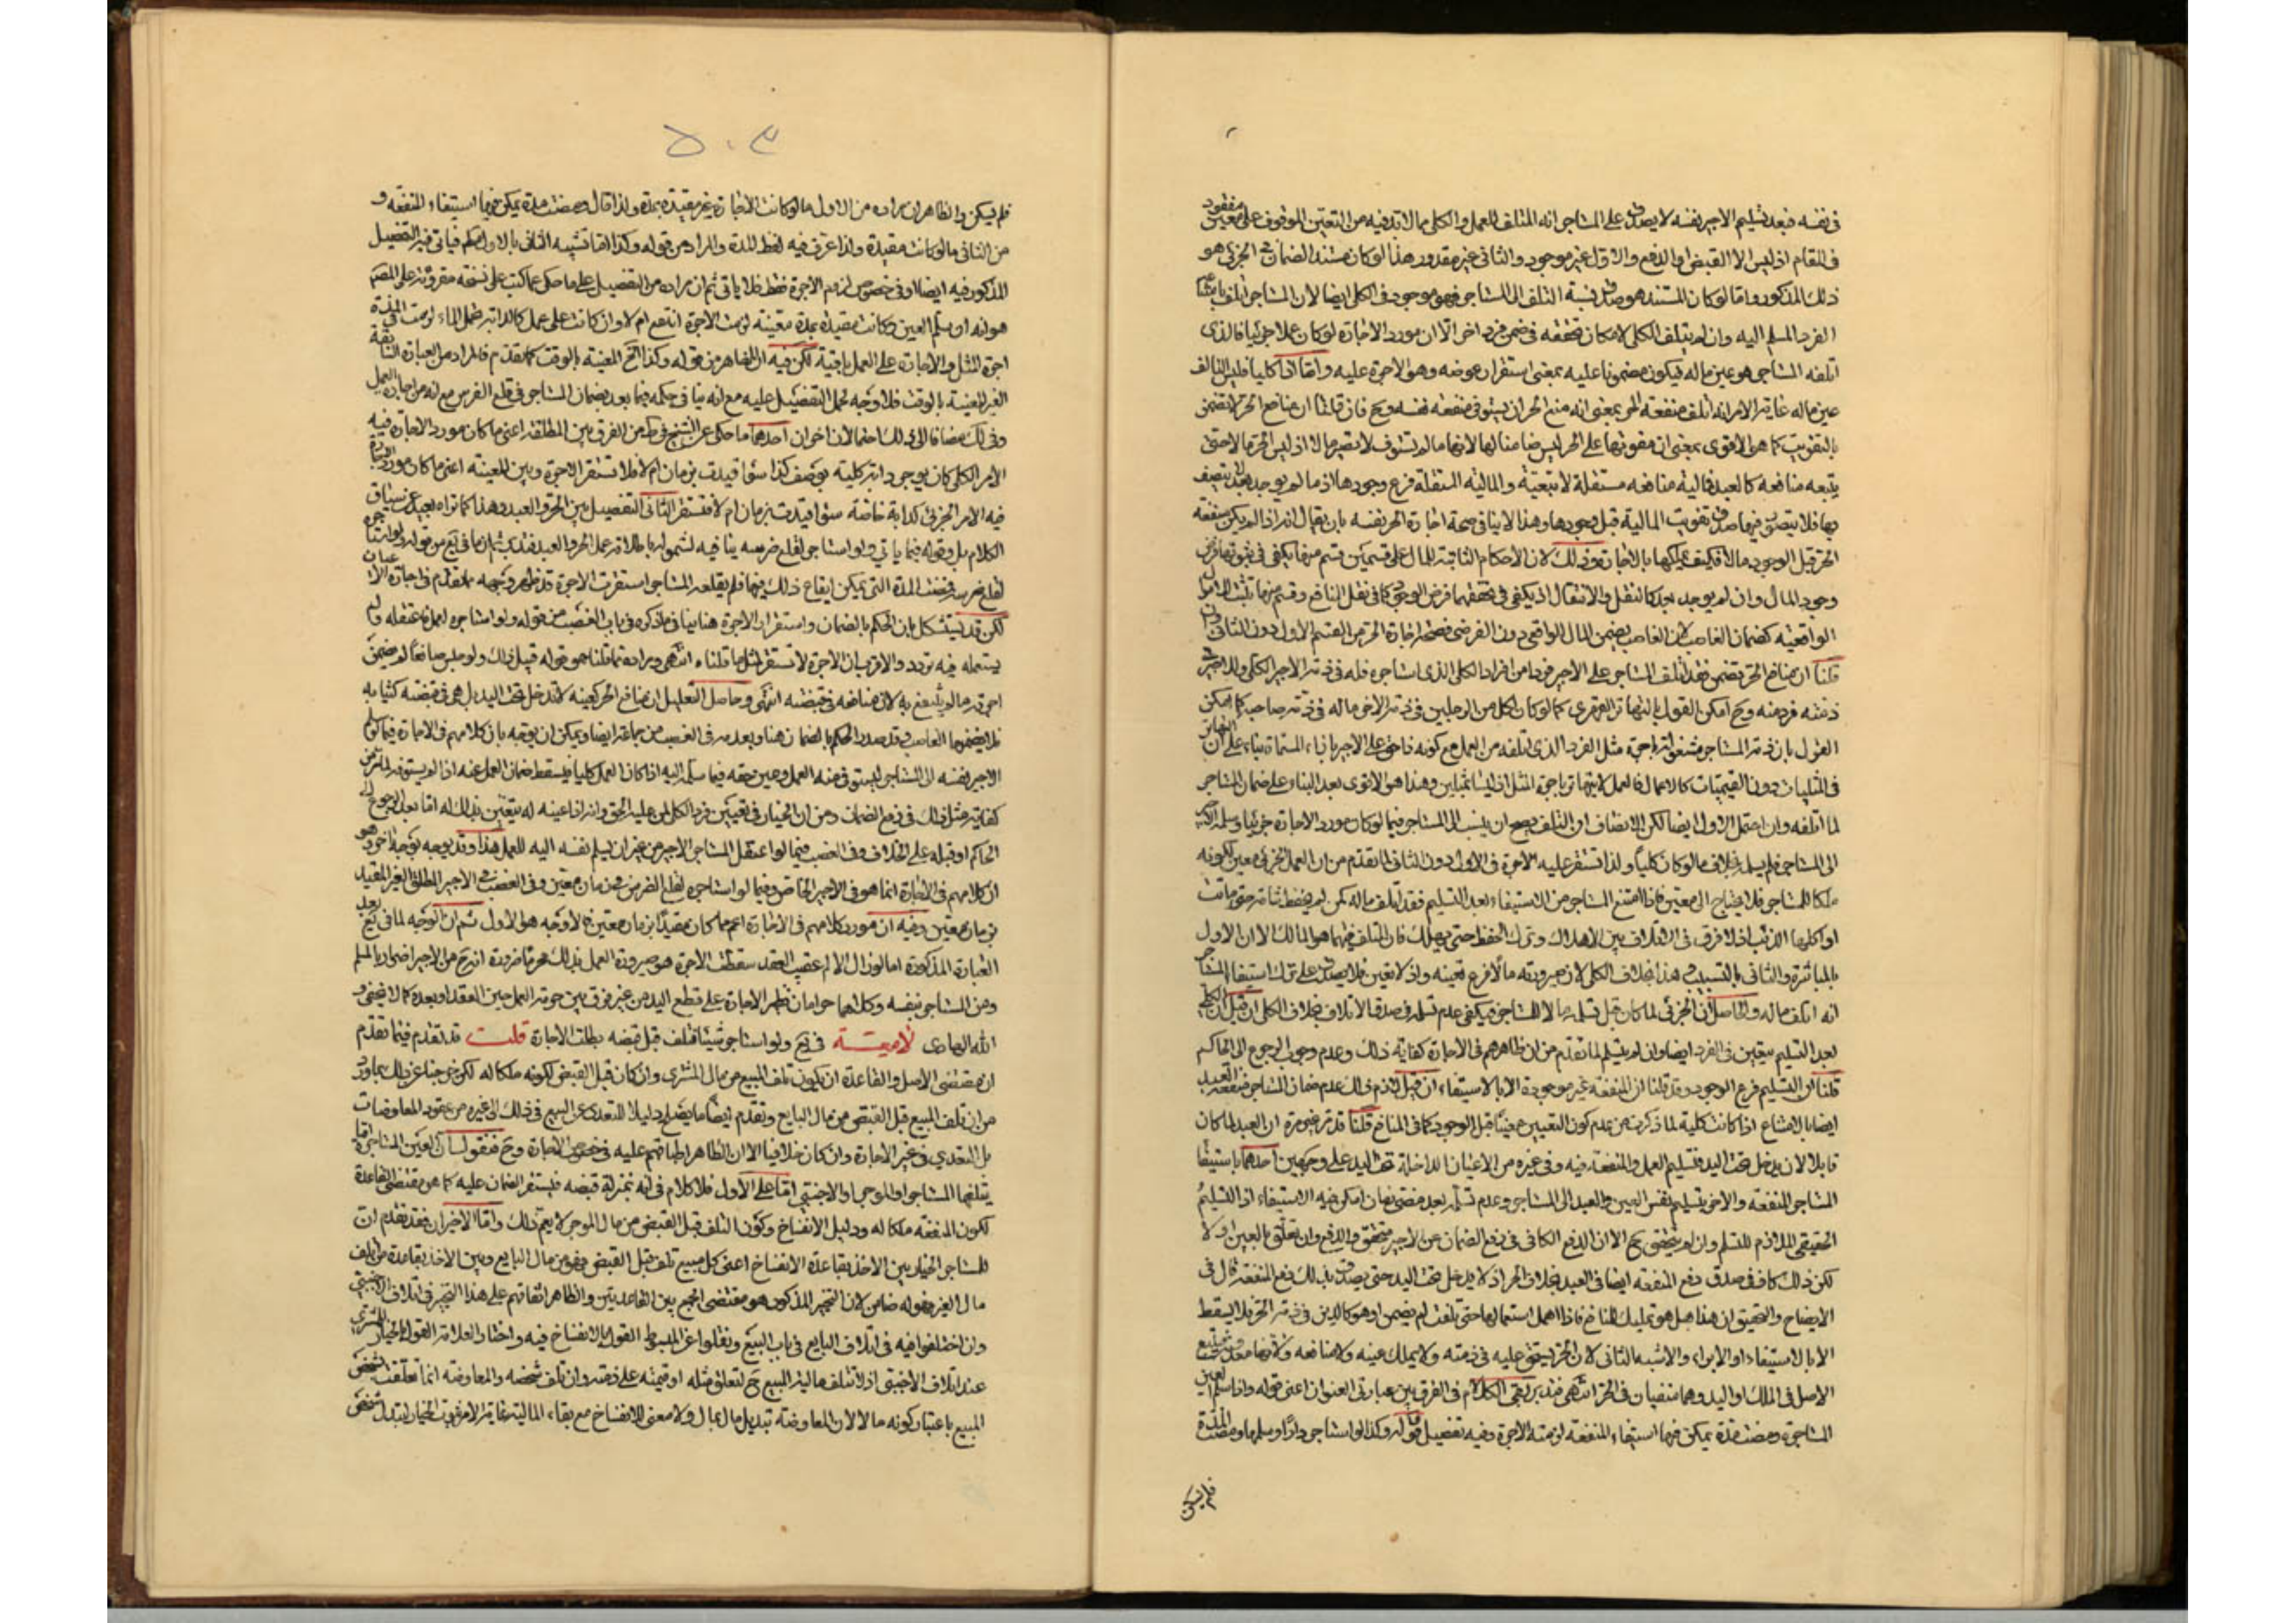 في نفسه فبعد تسليم الاجير نفسه لا يصدق على المستاجر انه المتلف للعمل والكلي مما لا بد فيه من التعيين الموقوف على معين مفقود
في المقام اذ ليس الا القبض او الدفع والاول غير موجود والثاني غير مقدور هذا لو كان مستند الضمان في الجزئي هو
ذلك المذكور واما لو كان المستند هو صدق نسبة التلف الى المستاجر فهو موجود في الكلي ايضا لان المستاجر اتلف
الفرد المسلم اليه وان لم يتلف الكلي لامكان تحققه في ضمن فرد اخر الا ان مورد الاجارة لو كان عملا جزئيا فالذي
اتلفه المستاجر هو عين ماله فيكون مضمونا عليه بمعنى استقرار عوضه وهو الاجرة عليه واما اذا كان كليا فليس التالف
عين ماله غاية الامر انه اتلف منفعة الحر بمعنى انه منع الحر ان يستوفي منفعة نفسه وح فان قلنا ان منافع الحر لا تضمن
بالتفويت كما هو الاقوى بمعنى ان مفوتها على الحر ليس ضامنا لها لانها ما لم تستوف لا تصير مالا اذ ليس الحر مالا حتى
يتبعه منافعه كالعبد فمالية منافعه مستقلة لا تبعية والمالية المستقلة فرع وجودها اذ ما لم يوجد بعد لا يتصف
بها فلا يتصدق فيها صدق تفويت المالية قبل وجودها وهذا لا ينافي صحة اجارة الحر نفسه بان يقال انه اذا لم يكن منفعة
الحر قبل الوجود مالا فكيف يملكها بالاجارة وذلك لان الاحكام الثابتة للمال على قسمين قسم منها يكفي في ثبوتها فرض
وجود المال وان لم يوجد بعد كالنقل والانتقال اذ يكفي في تحققهما فرض الوجود كما في نقل المنافع وقسم منها يثبت للاموال
الواقعية كضمان الغاصب لان الغاصب يضمن المال الواقعي دون الفرضي فصحة اجارة الحر من القسم الاول دون الثاني وان
قلنا ان منافع الحر تضمن فقد اتلف المستاجر على الاجير فردا من افراد الكلي الذي استاجره فله في ذمة الاجير الكلي وللاجير في
ذمته فرد منه وح امكن القول بالتهاتر القهري كما لو كان لكل من الرجلين في ذمة الاخر ماله في ذمة صاحبه كما امكن
القول بان ذمة المستاجر مشغولة باجرة مثل الفرد الذي اتلفه من العمل مع كونه ذا حق على الاجير باداء المسماة بناء على ان التهاتر
في المثليات دون القيميات كالاعمال فالعمل لا يتهاتر باجرة المثل اذ ليسا مثلين وهذا هو الاقوى بعد البناء على ضمان المستاجر
لما اتلفه وان احتمل الاول ايضا لكن الانصاف ان التلف يصح ان ينسب الى المستاجر فيما لو كان مورد الاجارة جزئيا وسلمه الاجير
الى المستاجر فلم يتسلمه بخلاف ما لو كان كليا ولذا تستقر عليه الاجرة في الاول دون الثاني لما تقدم من ان العمل الجزئي معين لكونه
ملكا للمستاجر فلا يحتاج الى معين فاذا امتنع المستاجر من الاستيفاء بعد التسليم فقد اتلف ماله كمن لم يحفظ شاته حتى ماتت
او اكلها الذئب اذ لا فرق في الاتلاف بين الاهلاك وترك الحفظ حتى يهلك فان المتلف فيهما هو المالك الا ان الاول
بالمباشرة والثاني بالتسبيب وهذا بخلاف الكلي لان صيرورته مالا فرع تعينه واذ لا تعين فلا يصدق على ترك استيفاء المستاجر
انه اتلف ماله والحاصل ان الجزئي لما كان قبل تسلمه مالا للمستاجر فيكفي عدم تسلمه في صدق الاتلاف بخلاف الكلي ان قيل ان الكلي
بعد التسليم يتعين في الفرد ايضا وان لم يتسلم لما تقدم من ان ظاهرهم في الاجارة كفاية ذلك وعدم وجوب الرجوع الى الحاكم
قلنا ان التسليم فرع الوجود وقد قلنا ان المنفعة غير موجودة الا بالاستيفاء ان قيل لازم ذلك عدم ضمان المستاجر منفعة العبد
ايضا بالامتناع اذا كانت كلية لما ذكرت من عدم كون التعيين معينا قبل الوجود كما في المنافع قلنا قد مر غير مرة ان العبد لما كان
قابلا لان يدخل تحت اليد فتسليم العمل والمنفعة فيه وفي غيره من الاعيان الداخلة تحت اليد على وجهين احدهما باستيفاء
المستاجر المنفعة والاخر بتسليم نفس العين والعبد الى المستاجر وعدم تسلمه بعد مضي زمان امكن فيه الاستيفاء اذ التسليم
الحقيقي الملازم للتسلم وان لم يتحقق ح الا ان الدفع الكافي في رفع الضمان عن الاجير متحقق والدفع وان تعلق بالعين اولا
لكن ذلك كاف في صدق دفع المنفعة ايضا في العبد بخلاف الحر اذ لا يدخل تحت اليد حتى يصدق بذلك دفع المنفعة قال في
الايضاح والتحقيق ان هذا هل هو تمليك للمنافع فاذا اهمل استعمالها حتى تلفت لم يضمن او هو كالدين في ذمة الحر فلا يسقط
الا بالاستيفاء او الابراء والاشبه الثاني لان الحر يستحق عليه في ذمته ولا يملك عينه ولا منافعه ولانها معدومة
الاصل في الملك واليد وهما منفيان في الحر انتهى فتدبر بقي الكلام في الفرق بين عبارتي العنوان اعني قوله واذا سلم العين
المستاجرة ومضت مدة يمكن فيها استيفاء المنفعة لزمته الاجرة وفيه تفصيل قوله وكذا لو استاجر دارا وسلمها ومضت المدة
فلم يسكن
٥٠٣
فلم يسكن والظاهر ان مراده من الاول ما لو كانت الاجارة غير مقيدة بمدة ولذا قال ومضت مدة يمكن فيها استيفاء المنفعة و
من الثاني ما لو كانت مقيدة ولذا عرف فيه لفظ المدة والمراد من قوله وكذا اما تشبيه الثاني بالاول في الحكم فياتي فيه التفصيل
المذكور فيه ايضا او في خصوص لزوم الاجرة فقط فلا ياتي ثم ان مراده من التفصيل على ما حكي عما كتب على نسخة مقروة على المصنف
هو انه لو سلم العين وكانت مقيدة بمدة معينة لزمت الاجرة انتفع ام لا وان كانت على عمل كالدابة لحمل الماء لزمت في المدة
اجرة المثل والاجارة على العمل باقية لكن فيه ان الظاهر من قوله وكذا الخ المعينة بالوقت كما تقدم فالمراد من العبارة السابقة
الغير المعينة بالوقت فلا وجه لحمل التفصيل عليه مع انه ينافي حكمه فيما بعد بضمان المستاجر في قلع الضرس مع انه من اجارة العمل
وفي ذلك مضافا الى ذلك احتمالان اخران احدهما ما حكي عن الشيخ في من الفرق بين المطلقة اعني ما كان مورد الاجارة فيه
الامر الكلي كان يوجر دابة كلية بوصف كذا سواء قيدت بزمان ام لا فلا تستقر الاجرة وبين المعينة اعني ما كان مورد الاجارة
فيه الامر الجزئي كدابة خاصة سواء قيدت بزمان ام لا فتستقر الثاني التفصيل بين الحر والعبد وهذا كما تراه بعيد عن سياق
الكلام بل وقوله فيما ياتي ولو استاجر لقلع ضرسه ينافيه لشموله باطلاقه عمل الحر والعبد
لقلع ضرسه فمضت المدة التي يمكن ايقاع ذلك فيها فلم يقلعه المستاجر استقرت الاجرة قد ظهر وجهه مما تقدم في اجارة الاعيان
لكن قد يستشكل بان الحكم بالضمان واستقرار الاجرة هنا ينافي ما ذكره في باب الغصب من قوله ولو استاجره لعمل فاعتقله ولم
يستعمله فيه تردد والاقرب ان الاجرة لا تستقر لمثل ما قلناه انتهى ومراده بما قلناه هو قوله قبيل ذلك ولو حبس صانعا لم يضمن
اجرته ما لم ينتفع به لان منافعه في قبضته انتهى وحاصل التعليل ان منافع الحر كعينه لا تدخل تحت اليد بل هي في قبضته كثيابه
فلا يضمنها الغاصب وقد صدر الحكم بالضمان هنا وبعدمه في الغصب من جماعة ايضا ويمكن ان يوجه بان كلامهم في الاجارة فيما لو سلم
الاجير نفسه الى المستاجر ليستوفي منه العمل وحين حقه فيما سلمه اليه اذا كان العمل كليا فيسقط ضمان العمل عنه اذا لم يستوفه لما مر من
كفاية مثل ذلك في رفع الضمان ومن ان الخيار في تعيين فرد الكلي لمن عليه الحق وانه اذا عينه له يتعين بذلك له اما بعد الرجوع الى
الحاكم او قبله على الخلاف وفي الغصب فيما لو اعتقل المستاجر الاجير من غير ان يسلم نفسه اليه للعمل هذا وقد يوجه بوجه اخر وهو
ان كلامهم في الاجارة انما هو في الاجير الخاص وفيما لو استاجره لقلع الضرس في زمان معين وفي الغصب في الاجير المطلق الغير المقيد
بزمان معين وفيه ان مورد كلامهم في الاجارة اعم مما كان مقيدا بزمان معين فالاوجه هو الاول ثم ان الوجه لما في يع بعد
العبارة المذكورة اما لو زال الالم عقيب العقد سقطت الاجرة هو صيرورة العمل بذلك محرما ضرورة انه ح من الاجير اضرار بالمسلم
ومن المستاجر بنفسه وكلاهما حرامان نظير الاجارة على قطع اليد من غير فرق بين حرمة العمل حين العقد او بعده كما لا يخفى و
الله الهادي لامعة في يع ولو استاجر شيئا فتلف قبل قبضه بطلت الاجارة قلت قد تقدم فيما تقدم
ان مقتضى الاصل والقاعدة ان يكون تلف المبيع من مال المشتري وان كان قبل القبض لكونه ملكا له لكن خرجنا عن ذلك بما ورد
من ان تلف المبيع قبل القبض من مال البايع وتقدم ايضا ما يصلح دليلا للتعدي عن البيع في ذلك الى غيره من عقود المعاوضات
بل التعدي في غير الاجارة وان كان خلافيا الا ان الظاهر اطباقهم عليه في خصوص الاجارة وح فنقول ان العين المستاجرة اما
يتلفها المستاجر او الموجر او الاجنبي اما على الاول فلا كلام في انه بمنزلة قبضه فيستقر الضمان عليه كما هو مقتضى القاعدة
لكون المنفعة ملكا له ودليل الانفساخ وكون التلف قبل القبض من مال الموجر لا يعم ذلك واما الاخيران فقد تقدم ان
للمستاجر الخيار بين الاخذ بقاعدة الانفساخ اعني كل مبيع تلف قبل القبض فهو من مال البايع وبين الاخذ بقاعدة من اتلف
مال الغير فهو له ضامن لان التخيير المذكور هو مقتضى الجمع بين القاعدتين والظاهر اتفاقهم على هذا التخيير في اتلاف الاجنبي
وان اختلفوا فيه في اتلاف البايع في باب البيع ونقلوا عن المبسوط القول بالانفساخ فيه واختار العلامة القول بالخيار للمشتري
عند اتلاف الاجنبي اذ لا تتلف مالية المبيع ح لتعلق مثله او قيمته على ذمته وان تلف شخصه والمعاوضة انما تعلقت بشخص
المبيع باعتبار كونه مالا لان المعاوضة تبديل مال بمال ولا معنى للانفساخ مع بقاء المالية غاية الامر ثبوت الخيار لتبدل شخص